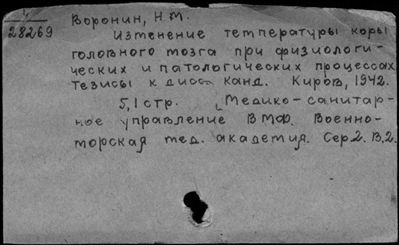 Воронин, Н.М.
28269
Изменение температуры коры
головного мозга при физиологи-
ческих и патологических процессах
Тезисы к дисс. канд. Киров, 1942.
5,1 стр. Медико-санитар-
ное управление ВМФ. Военно-
морская мед. академия. Сер 2. В.2.